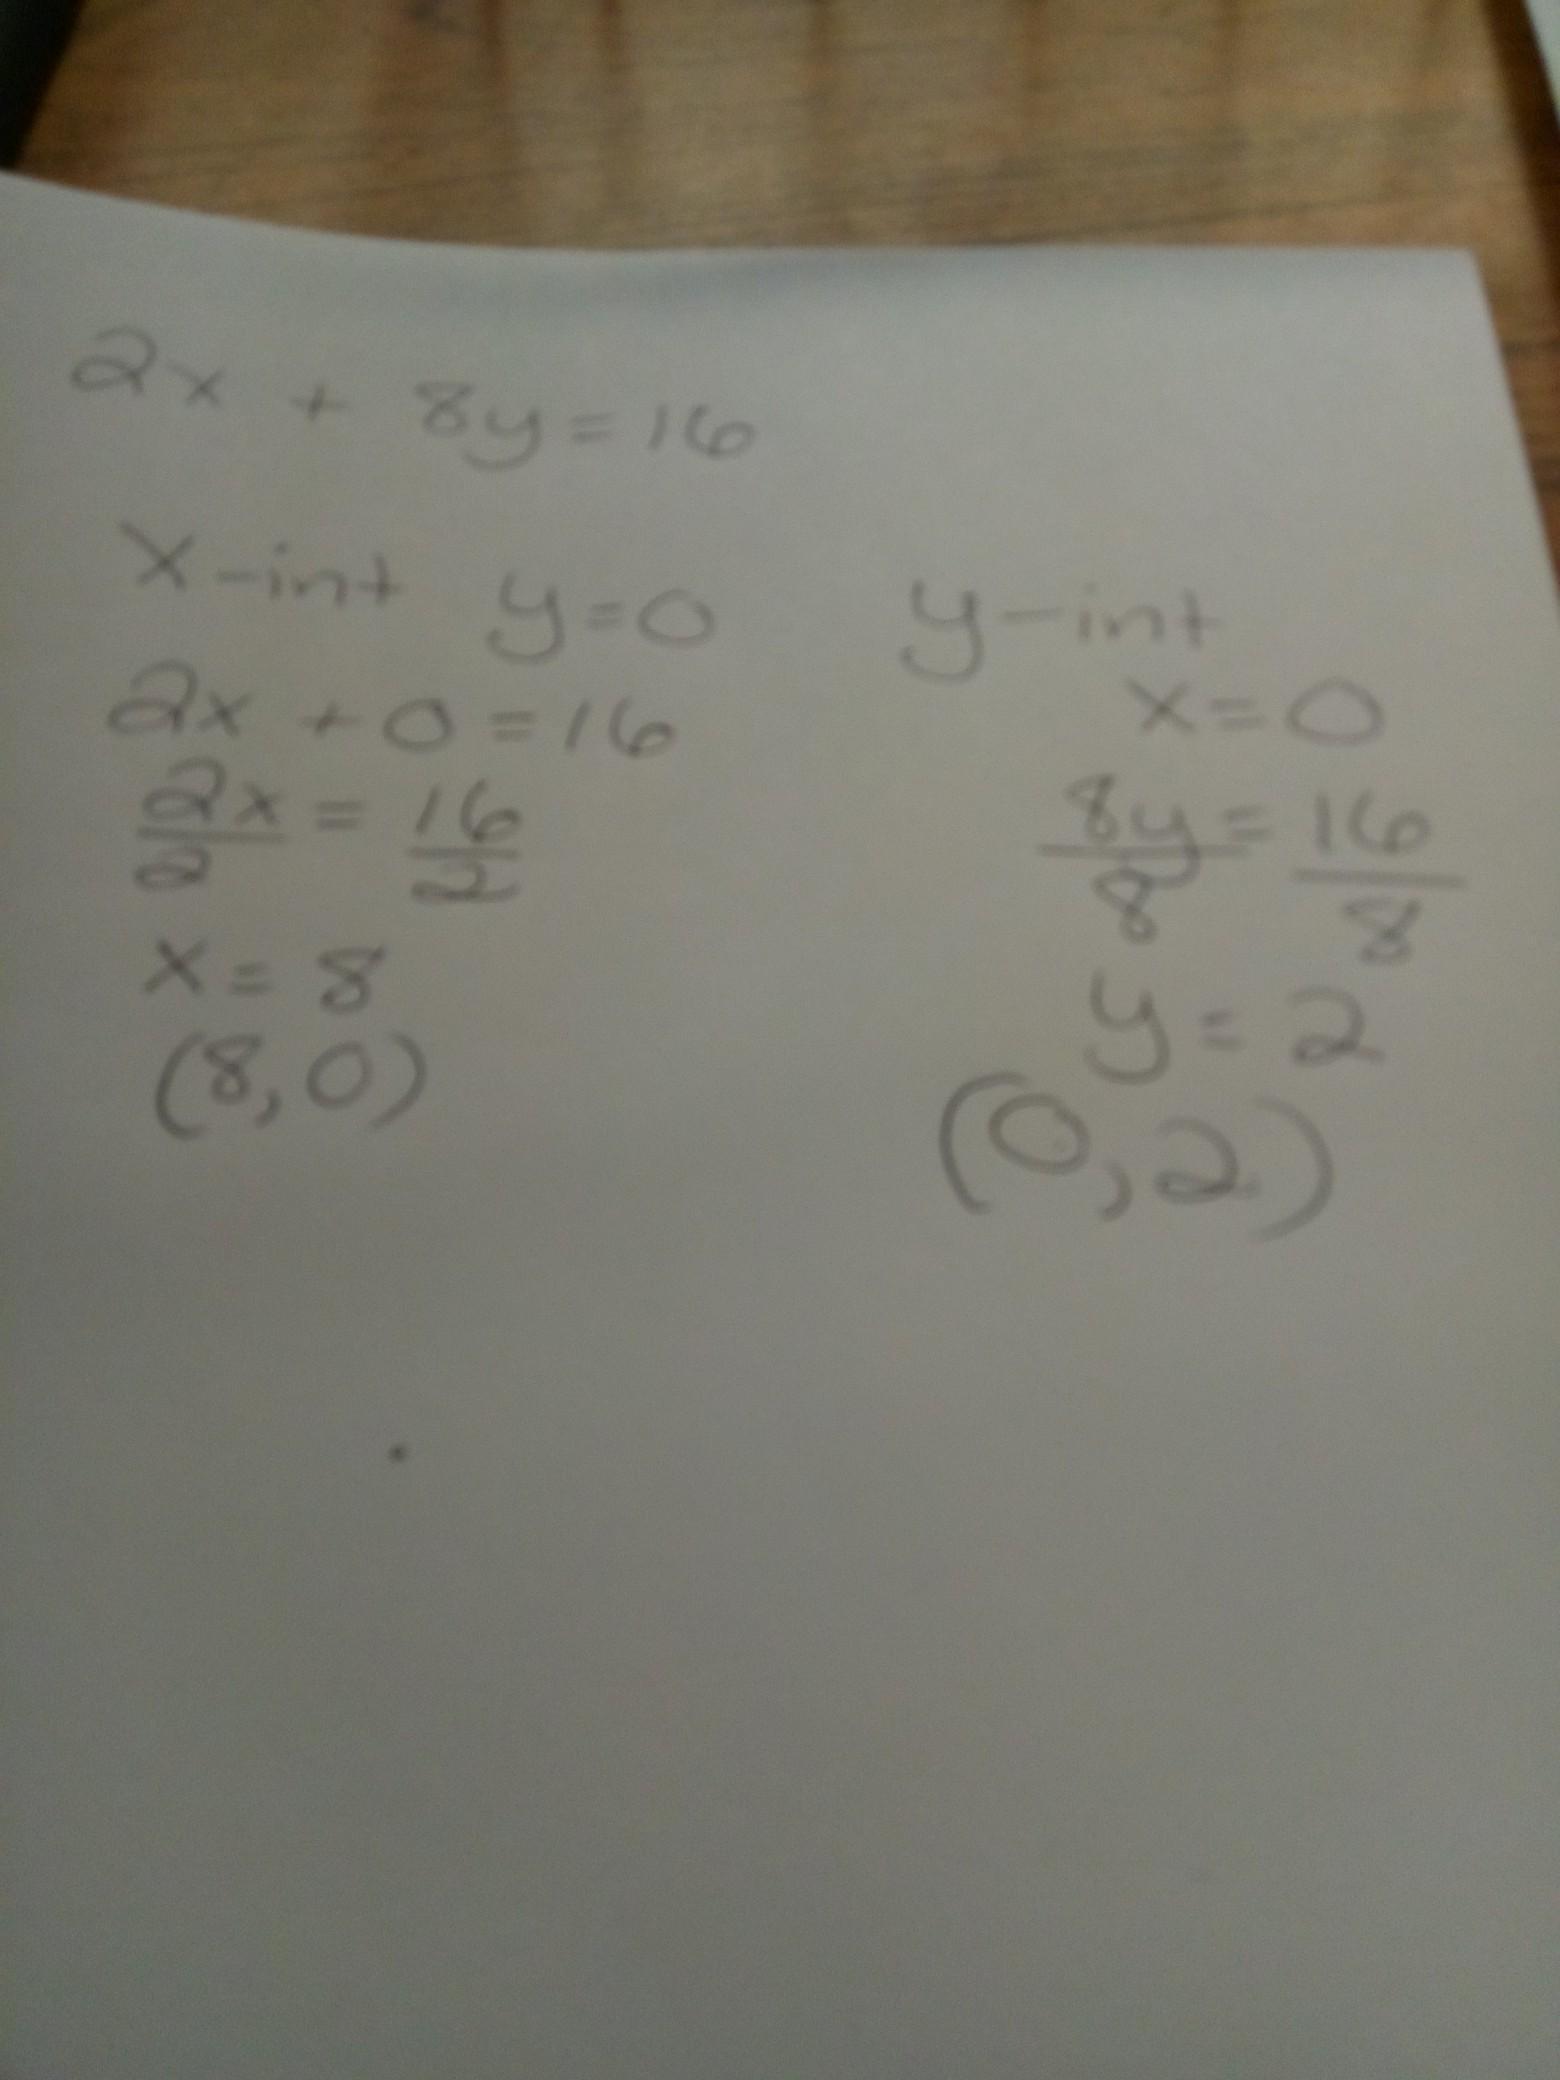 2x + 8y = 16
x-int y=0
2x + 0 = 16
2x = 16
2 2
x = 8
(8,0)
y-int
x = 0
8y = 16
8 8
y = 2
(0,2)